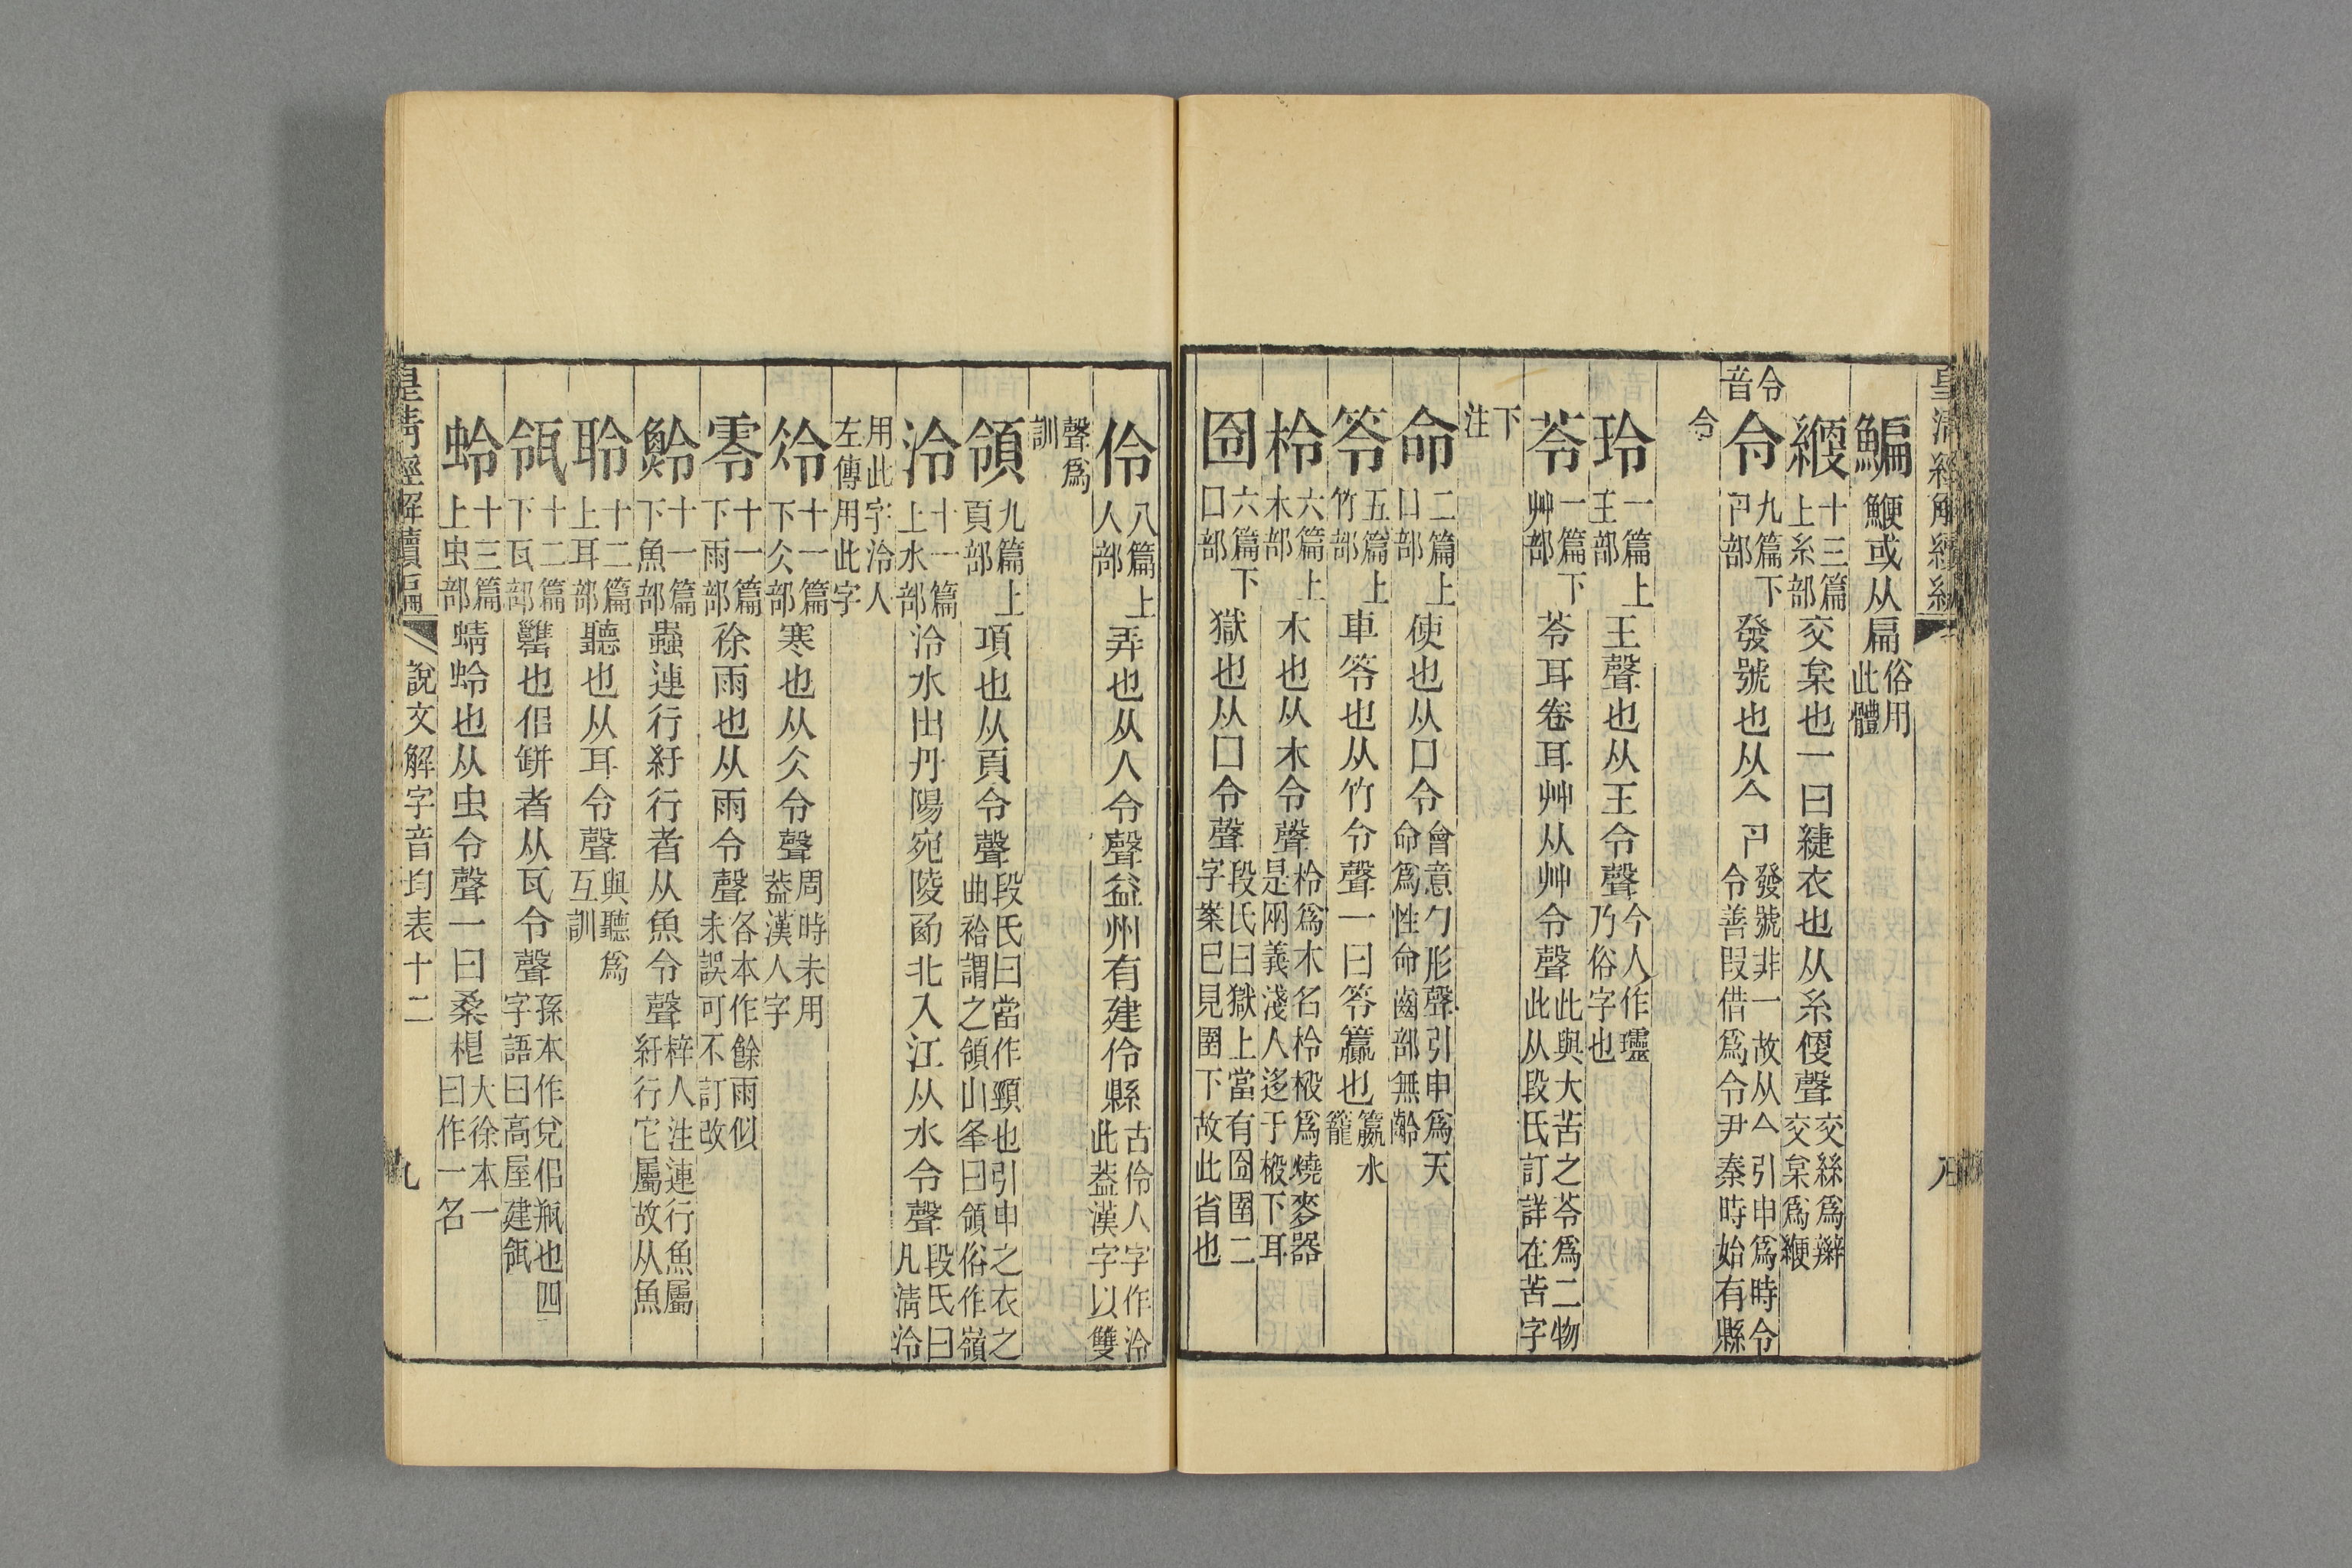 皇清經解續編
八
鯿鯾或从扁俗用此體
緶十三篇上糸部交枲也一曰緁衣也从糸㛹聲交絲爲辮交枲爲鞭
令音
令九篇下卪部發號也从亼卪發號非一故从亼引申爲時令令善叚借爲令尹秦時始有縣
令
玲一篇上玉部玉聲也从王令聲今人作瓏乃俗字也
苓一篇下艸部苓耳卷耳艸从艸令聲此與大苦之苓爲二物此从段氏訂詳在苦字
下注
命二篇上口部使也从口令會意勹形聲引申爲天命爲性命齒部無齡
笭五篇上竹部車笭也从竹令聲一曰笭籯也籯水籠
柃六篇上木部木也从木令聲柃爲木名柃椴爲燒麥器是兩義淺人迻于椴下耳
囹六篇下囗部獄也从囗令聲段氏曰獄上當有囹圄二字椉巳見圉下故此省也
伶八篇上人部弄也从人令聲益州有建伶縣古伶人字作泠此葢漢字以雙
聲爲訓
領九篇上頁部項也从頁令聲段氏曰當作頸也引申之衣之曲袷謂之領山夆曰領俗作嶺
泠十一篇上水部泠水出丹陽宛陵西北入江从水令聲段氏曰凡淸泠
用此字泠人左傳用此字
冷十一篇下仌部寒也从仌令聲周時未用葢漢人字
零十一篇下雨部徐雨也从雨令聲各本作餘雨似未誤可不訂改
魿十一篇下魚部蟲連行紆行者从魚令聲梓人注連行魚屬紆行它屬故从魚
聆十二篇上耳部聽也从耳令聲與聽爲互訓
瓴十二篇下瓦部罋也佀缾者从瓦令聲孫本作㼽佀瓶也四字語曰高屋建瓴
蛉十三篇上虫部蜻蛉也从虫令聲一曰桑桹大徐本一曰作一名
皇清經解續編
說文解字音均表十二
九